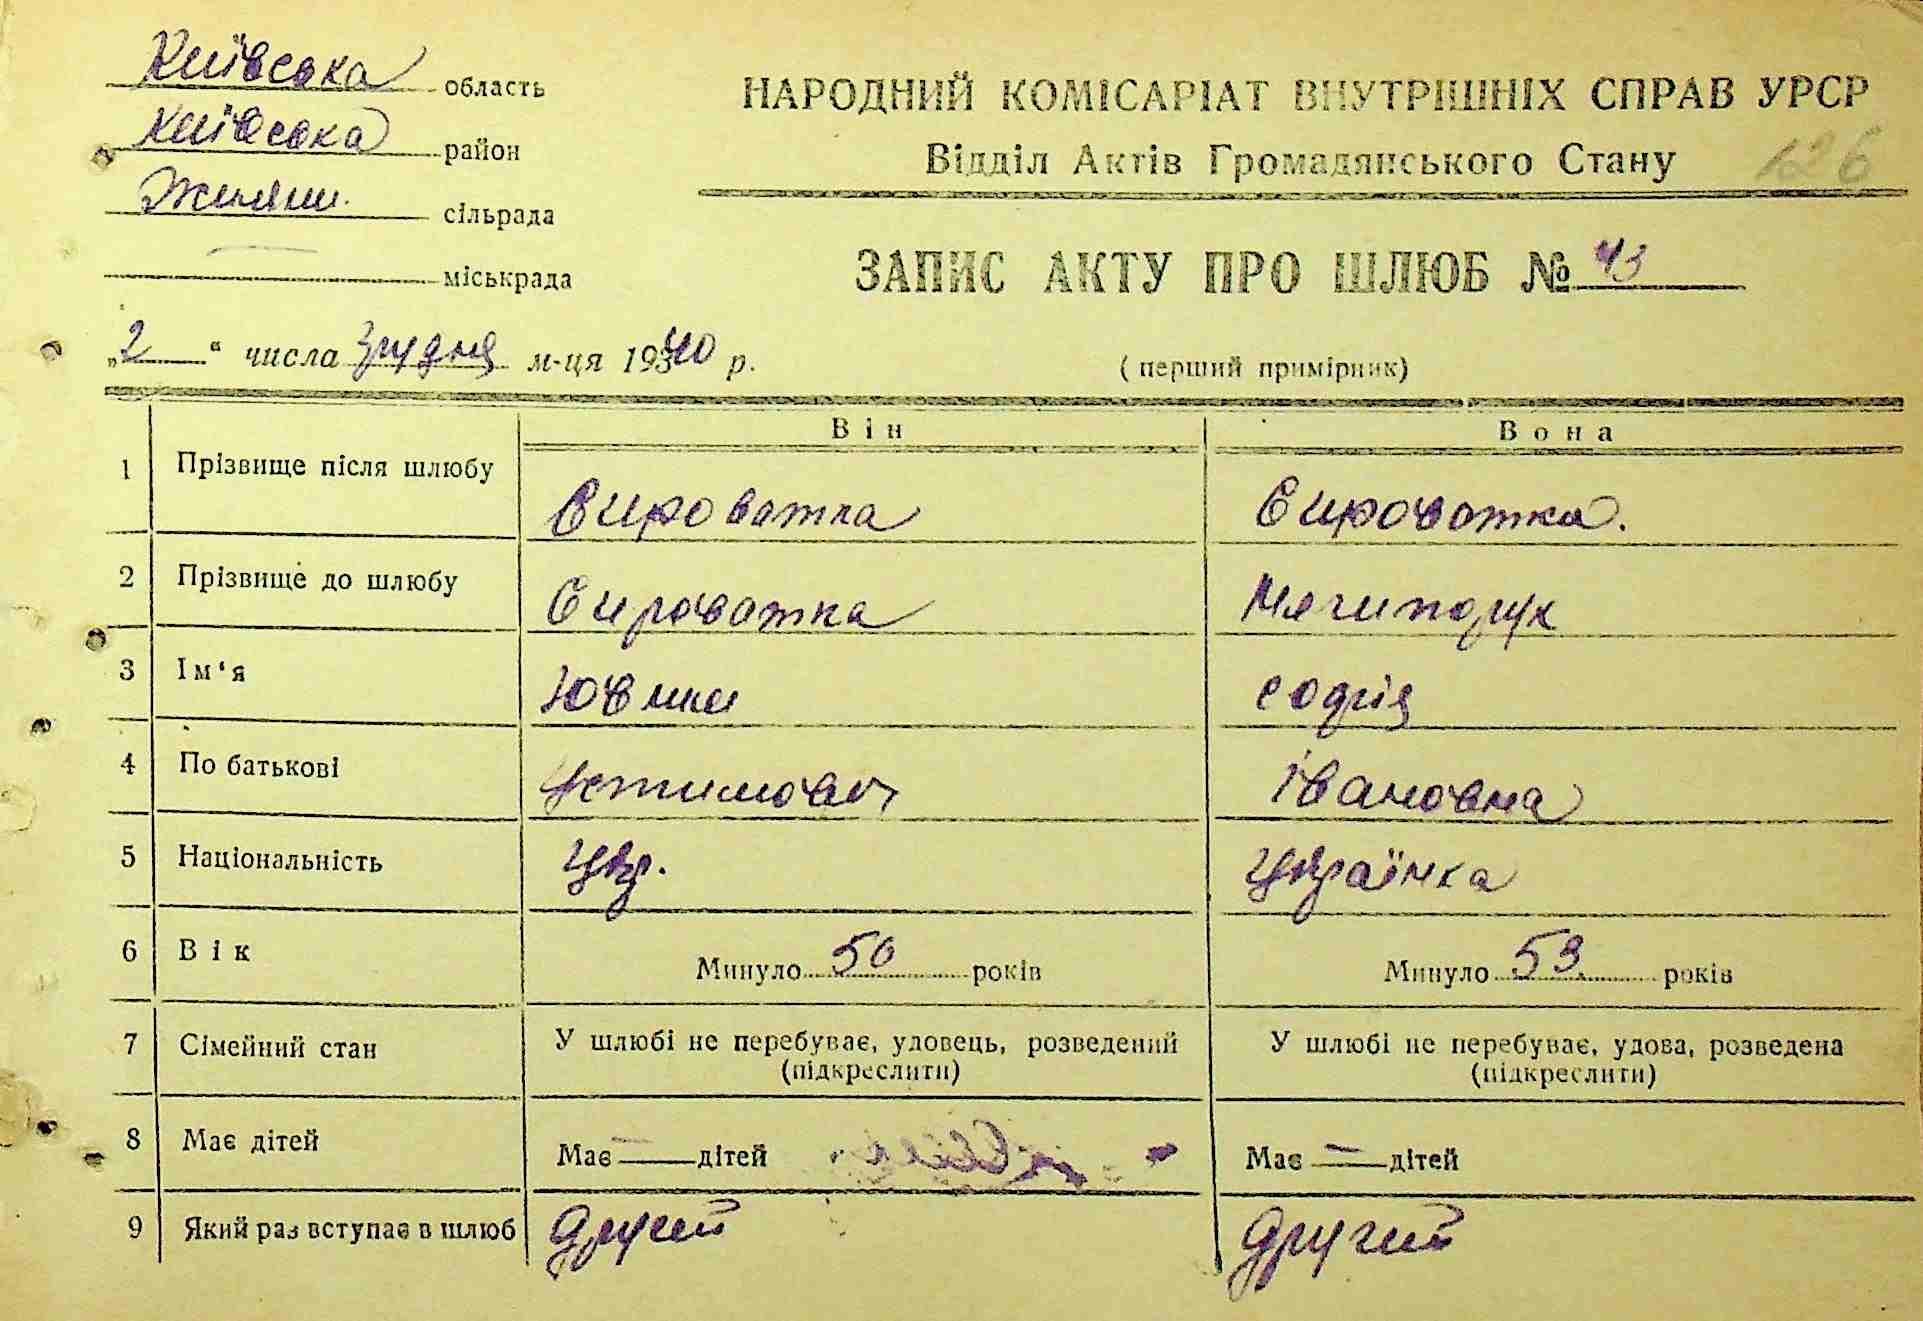 Київська область
Київська район
Жиляни. сільрада
міськрада
НАРОДНИЙ КОМІСАРІАТ ВНУТРІШНІХ СПРАВ УРСР
Відділ Актів Громадянського Стану 126
ЗАПИС АКТУ ПРО ШЛЮБ № 43
„2“ числа Грудня м-ця 1940 р.
(перший примірник)
Він Вона
1 Прізвище після шлюбу Сироватка Сироватка.
2 Прізвище до шлюбу Сироватка
3 Ім‘я Софія
4 По батькові Устимович Івановна
5 Національність Укр. Українка
6 Вік Минуло 50 років Минуло 53 років
7 Сімейний стан У шлюбі не перебуває, удовець, розведений У шлюбі не перебуває, удова, розведена
(підкреслити) (підкреслити)
8 Має дітей Має — дітей Має — дітей
9 Який раз вступає в шлюб Другий Другий